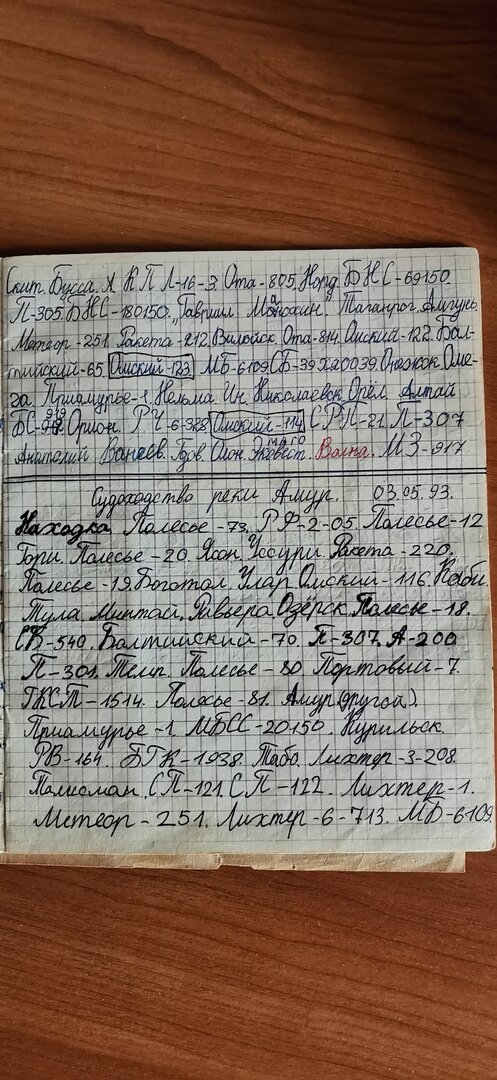 Скит. Бусса. Х К П Л-16-3. Ота-805. Норд. БНС-69150.
П-305. БНС-180150. „Гавриил Монохин." Таганрог. Амгунь.
Метеор-251. Ракета-212. Вилюйск. Ота-814. Омский-122. Бал-
тийский-65. Омский-123 МБ-6109. СБ-39. Ха0039. Онежок. Оме-
га. Приамурье-1. Нельма. Ин. Николаевск. Орёл. Алтай
БС- Орион. РЧ-6-328. Омский-114 СРП-21. П-307
Анатолий Ванеев. Гдов. Олон. Волна. МЗ-917
Судоходство реки Амур. 03.05.93.
Находка. Полесье-73. РФ-2-05. Полесье-12
Гори. Полесье-20. Яхон. Уссури. Ракета-220.
Полесье-19. Боготол. Улар. Омский-116.
Тула. Минтай. Равьера. Озёрск. Полесье-18.
СК-540. Балтийский-70. П-307. А-200
П-301. Темп. Полесье-80. Портовый-7.
ГКСТ-1514. Полесье-81. Амур(другой).
Приамурье-1. МБСС-20150. Курильск.
РВ-164. БГК-1938. Табо. Лихтер-3-208.
Талисман. СП-121. СП-122. Лихтер-1.
Метеор-251. Лихтер-6-713. МБ-6109.